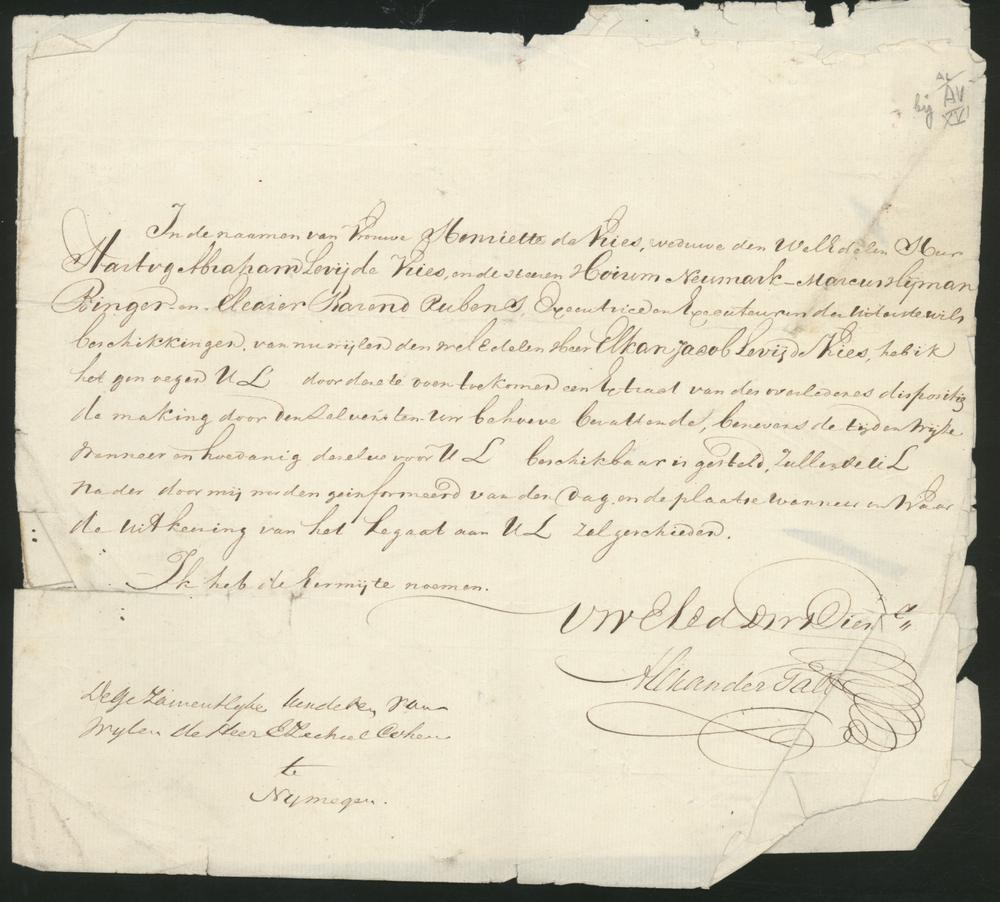 AL
bij AV
XVI
In de naamen van Vrouwe Henriette de Vries, weduwe den WelEdelen Heer
Hartog Abraham Levij de Vries, en de Heeren Hoirum Neumark - Marcus Hijman
Ringer - en Eleazer Barend Rubens, Executrice en Executeuren der uiterste wils
beschikkingen, van nu wijlen den wel Edelen Heer Elkan Jacob Levij de Vries, heb ik
het genoegen UL door deze te doen toekomen een Extract van des overledenes dispositie
de making door denzelven ten Uw behoeve bevattende, benevens de tijd en Wijze
Wanneer en hoedanig dezelve voor UL beschikbaar is gesteld, Zullende UL
nader door mij worden geinformeerd van den Dag, en de plaatse wanneer en Waar
de Uitkeering van het Legaat aan UL zal geschieden.
Ik heb de Eer mij te noemen.
UW Eled Dw Dien
Alexander
De Gezamentlijke kinderen van
Wylen de Heer Ezechiel Cohen
te
Nymegen.